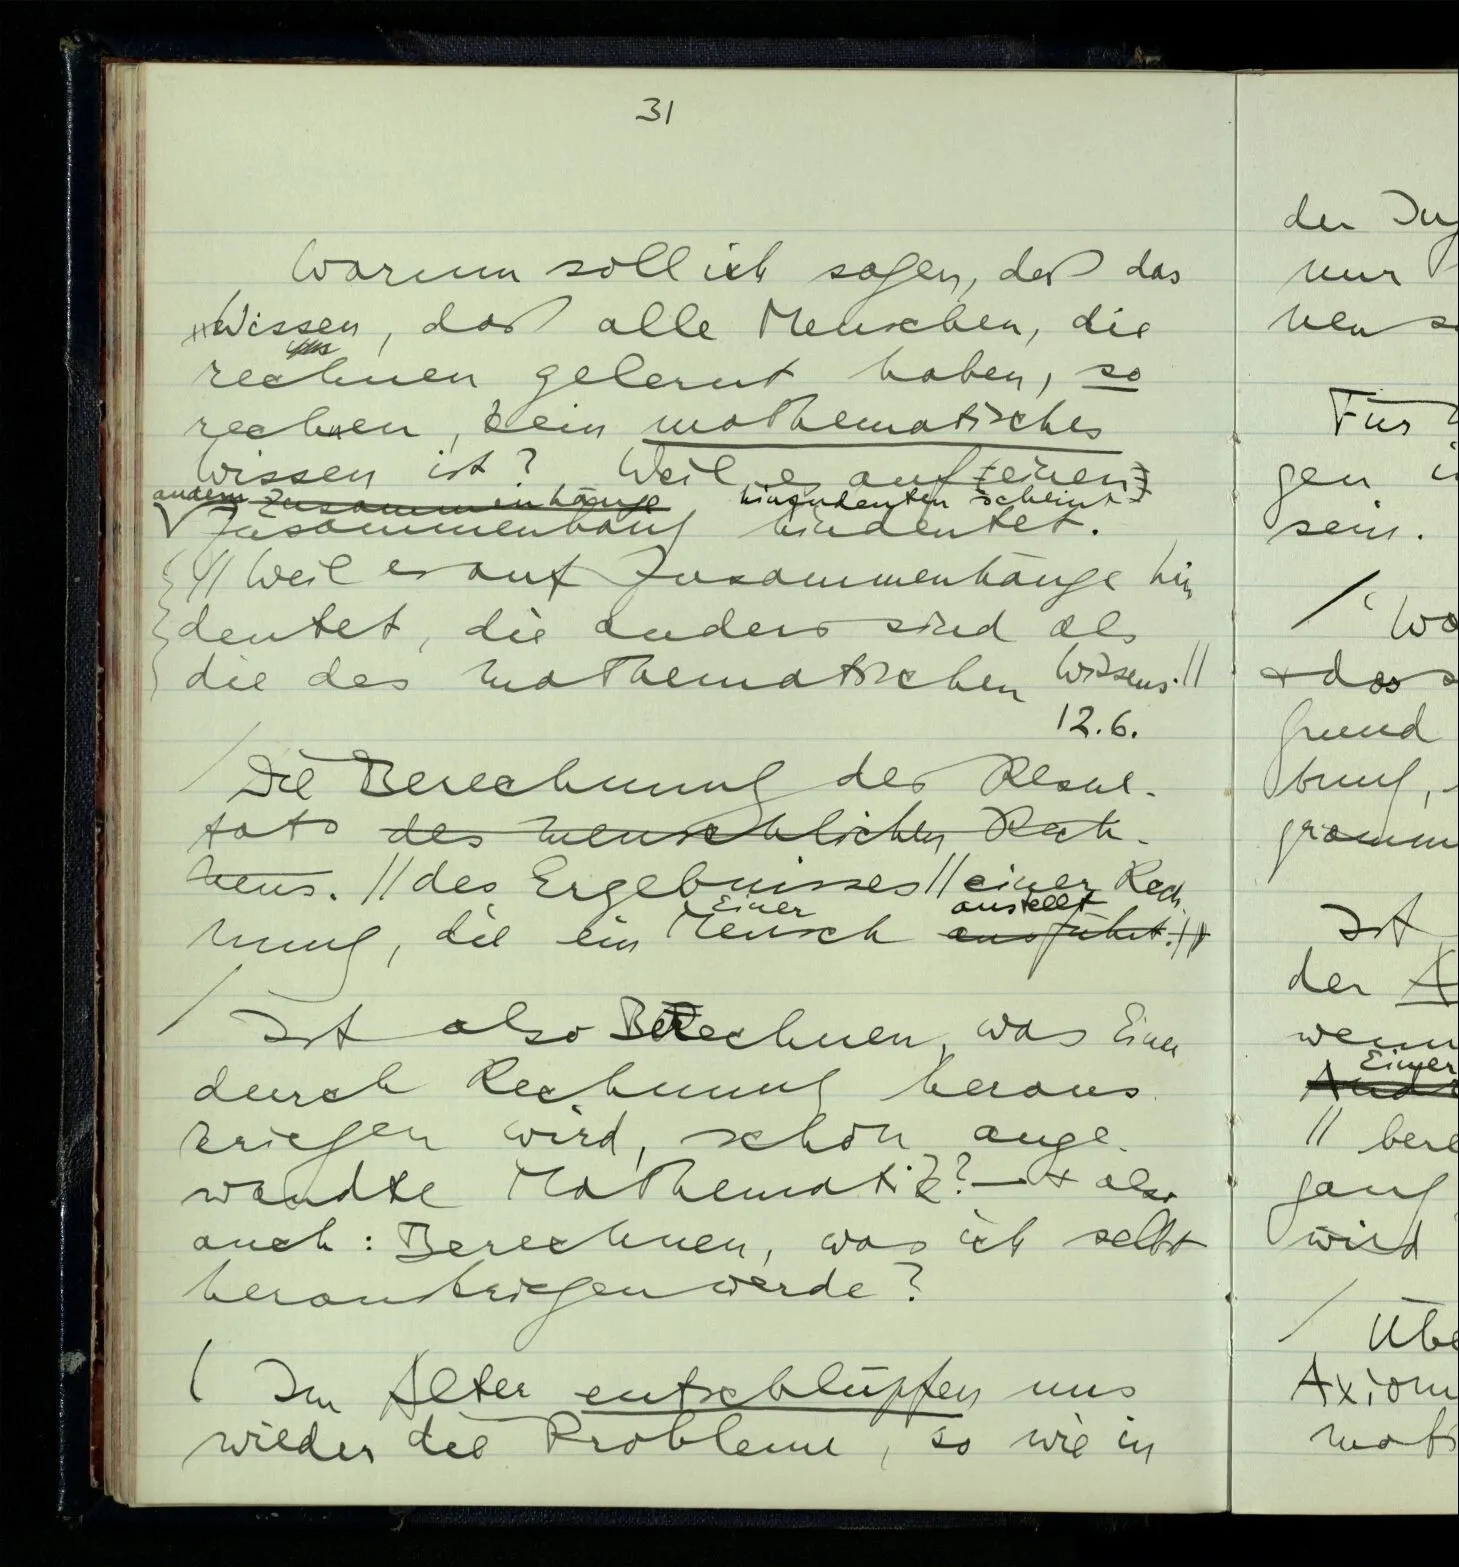 31
Warum soll ich sagen, daß das
„Wissen, daß alle Menschen, die
rechnen gelernt haben, so
rechnen, kein mathematisches
Wissen ist? Weil es auf einen
andern Zusammenhänge hinzudeuten scheint
Zusammenhang hindeutet.
// Weil es auf Zusammenhänge hin
deutet, die anders sind als
die des mathematischen Wissens. //
12.6.
/ Die Berechnung des Resul-
tats des menschlichen Rech-
nens. // des Ergebnisses // einer Rech
Einer anstellt
nung, die ein Mensch ausführt. //
/ Ist also Berechnen, was Einer
durch Rechnung heraus
kriegen wird, schon ange-
wandte Mathematik? – + also
auch: Berechnen, was ich selbst
herauskriegen werde?
( Im Alter entschlüpfen uns
wieder die Probleme, so wie in
der Jug
nur
nen s
Für
gen i
sein.
/ Wo
+ das
grund
bung,
gramm
Ist
der A
wenn
Einer
// bere
gang
wird
/ Übe
Axiom
mat